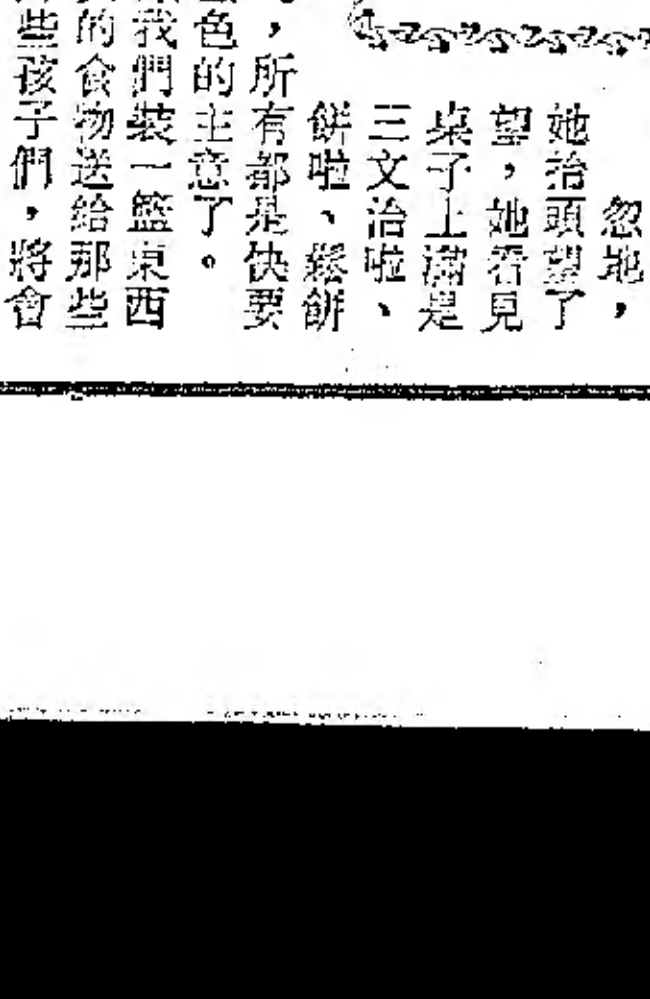 忽地，
她抬頭望了
望，她看見
桌子上滿是
三文治啦、
餅啦、鬆餅
，所有都是快要
色的主意了。
我們裝一籃東西
的食物送給那些
些孩子們，將會